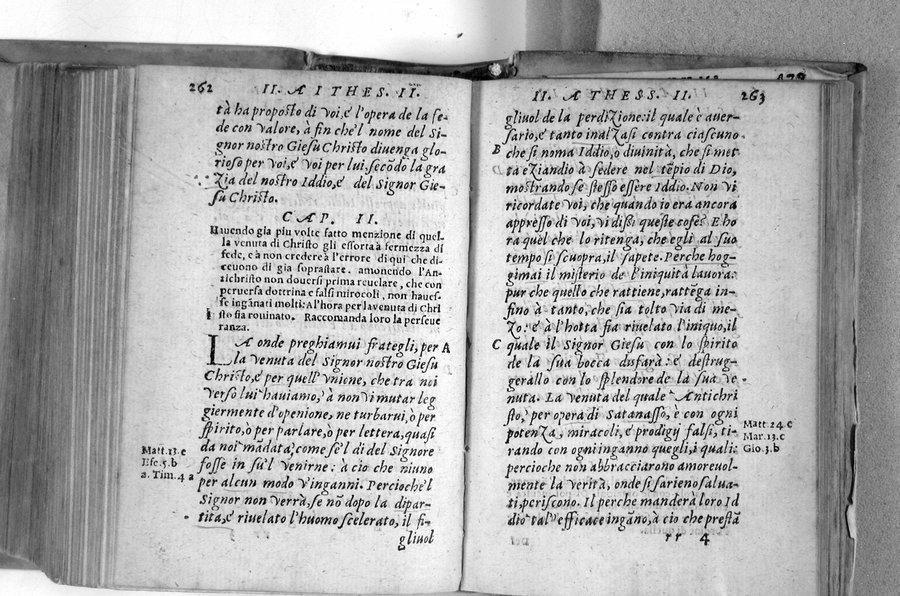 262 II. A I THES. II.
tà ha proposto di voi,e l'opera de la fe-
de con valore, à fin che'l nome del Si-
gnor nostro Giesu Christo diuenga glo-
rioso per voi,e voi per lui,secõdo la gra
zia del nostro Iddio,e del Signor Gie-
su Christo.
CAP. II.
Hauendo gia piu volte fatto menzione di quel-
la venuta di Christo gli essorta à fermezza di
fede, e à non credere à l'errore di qui che di-
ceuono di gia soprastare. amonendo l'An-
tichristo non douersi prima reuelare, che con
peruersa dottrina e falsi mirocoli, non hauesse
se ingãnati molti: Al'hora per la venuta di Chri
sto sia rouinato. Raccomanda loro la perseue
ranza.
LA onde preghiamui frategli, per A
la venuta del Signor nostro Giesu
Christo,e per quell'vnione, che tra noi
verso lui hauiamo, à non vi mutar leg
giermente d'openione, ne turbarui,ò per
spirito,ò per parlare,ò per lettera,quasi
da noi mãdata; come se'l di del Signore
fosse in su'l venirne : à cio che niuno
per alcun modo v'inganni. Percioche'l
Signor non verrà,se nõ dopo la dipar-
tita,e riuelato l'huomo scelerato, il fi-
gliuol
Matt.13.e
Efe.5.b
2. Tim.4 a
II. A THESS. II. 263
gliuol de la perdizione: il quale è auer-
sario,e tanto inalzasi contra ciascuno
B che si noma Iddio,o diuinità, che si met
ta eziandio à sedere nel tẽpio di Dio,
mostrando se stesso essere Iddio. Non vi
ricordate voi, che quando io era ancora
appresso di voi, vi dissi queste cose? E ho
ra quel che lo ritenga, che egli al suo
tempo si scuopra,il sapete. Perche hog-
gimai il misterio de l'iniquità lauora:
pur che quello che rattiene,rattẽga in-
fino à tanto, che sia tolto via di me-
zo: e à l'hotta fia riuelato l'iniquo,il
C quale il Signor Giesu con lo spirito
de la sua bocca disfarà: e destrug-
gerallo con lo splendore de la sua ve
nuta. La venuta del quale Antichri
sto, per opera di Satanasso, è con ogni
potenza, miracoli, e prodigij falsi, ti-
rando con ogni inganno quegli,i quali:
percioche non abbracciarono amoreuol-
mente la verità, onde si sarieno salua-
ti,periscono. Il perche manderà loro Id
dio tal'efficace ingãno,à cio che prestã
rr 4
Matt.24.c
Mar.13.c
Gio.3.b